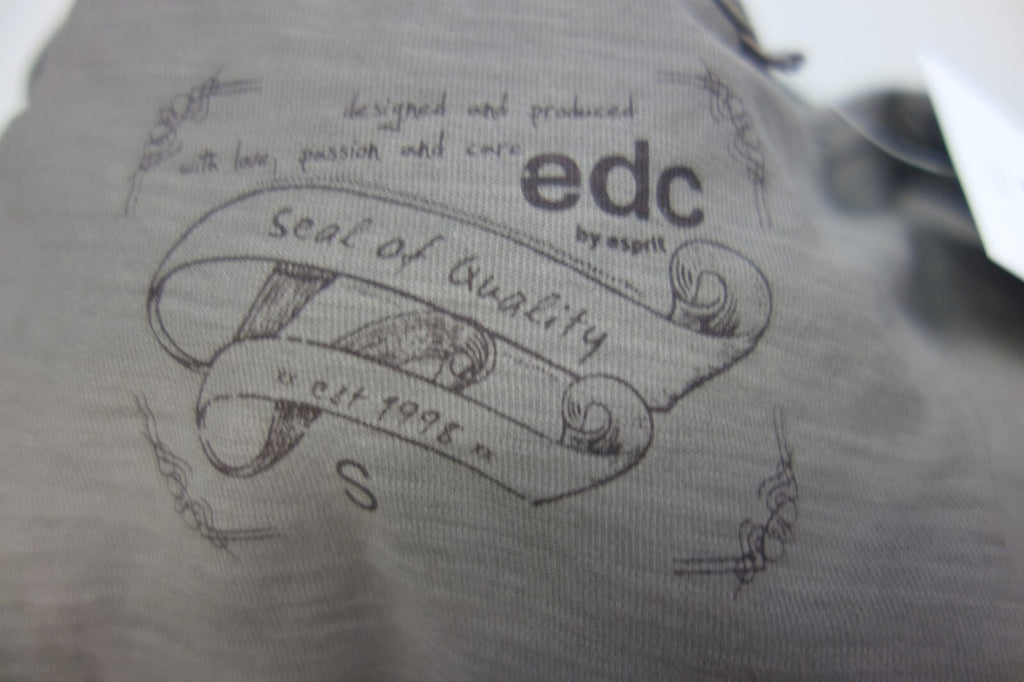 designed and produced
with love, passion and care
edc
by esprit
Seal of Quality
" est 1998 "
S